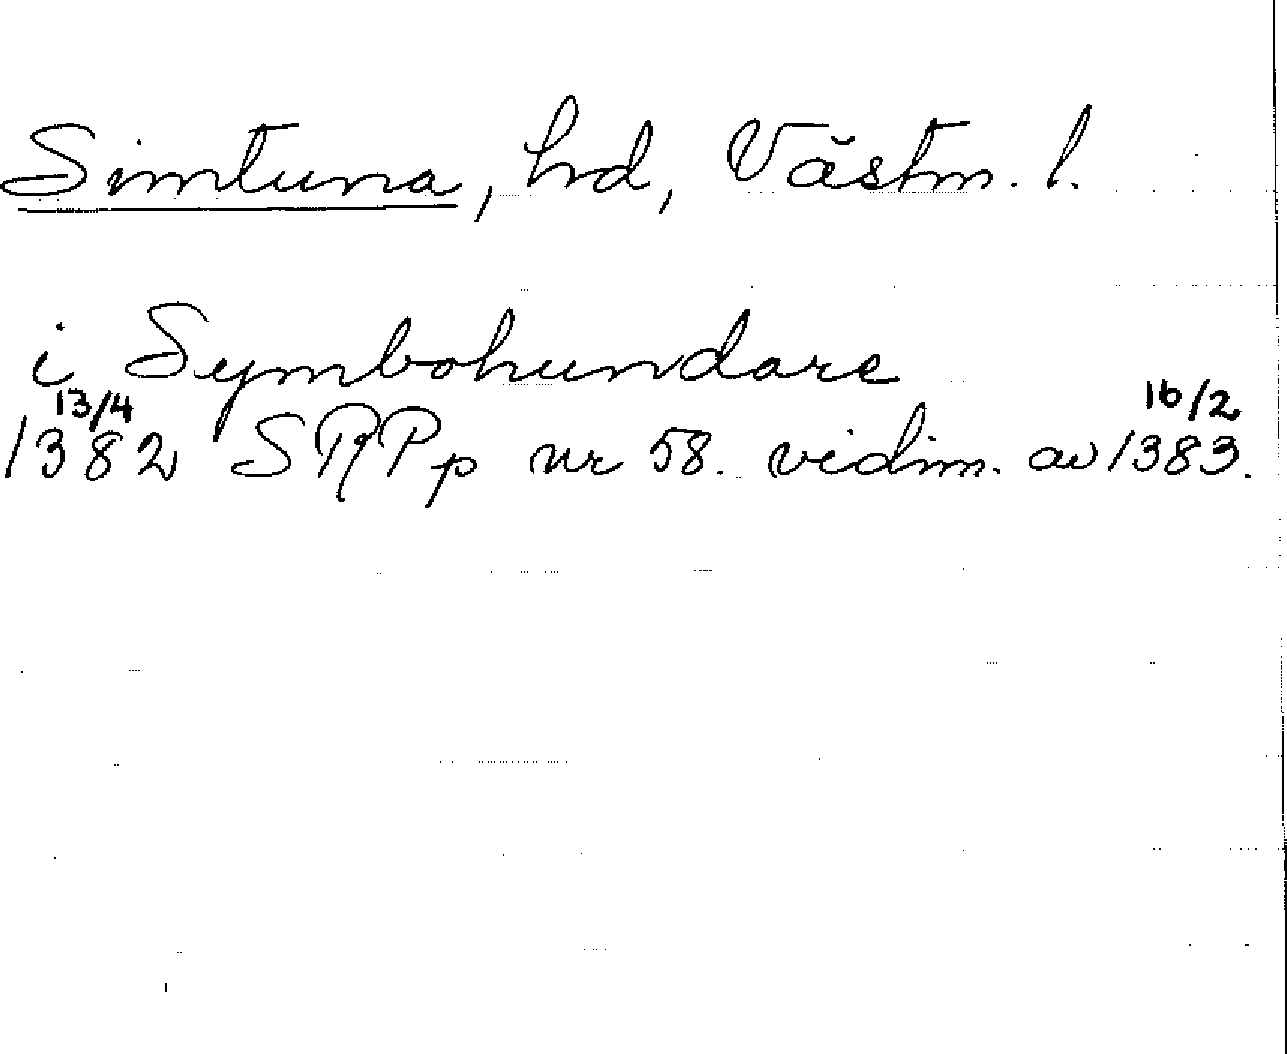 Simtuna, hd, Västm. l.
i Symbohundare
13/4 16/2
1382 SRPp nr 58. vidim. av 1383.